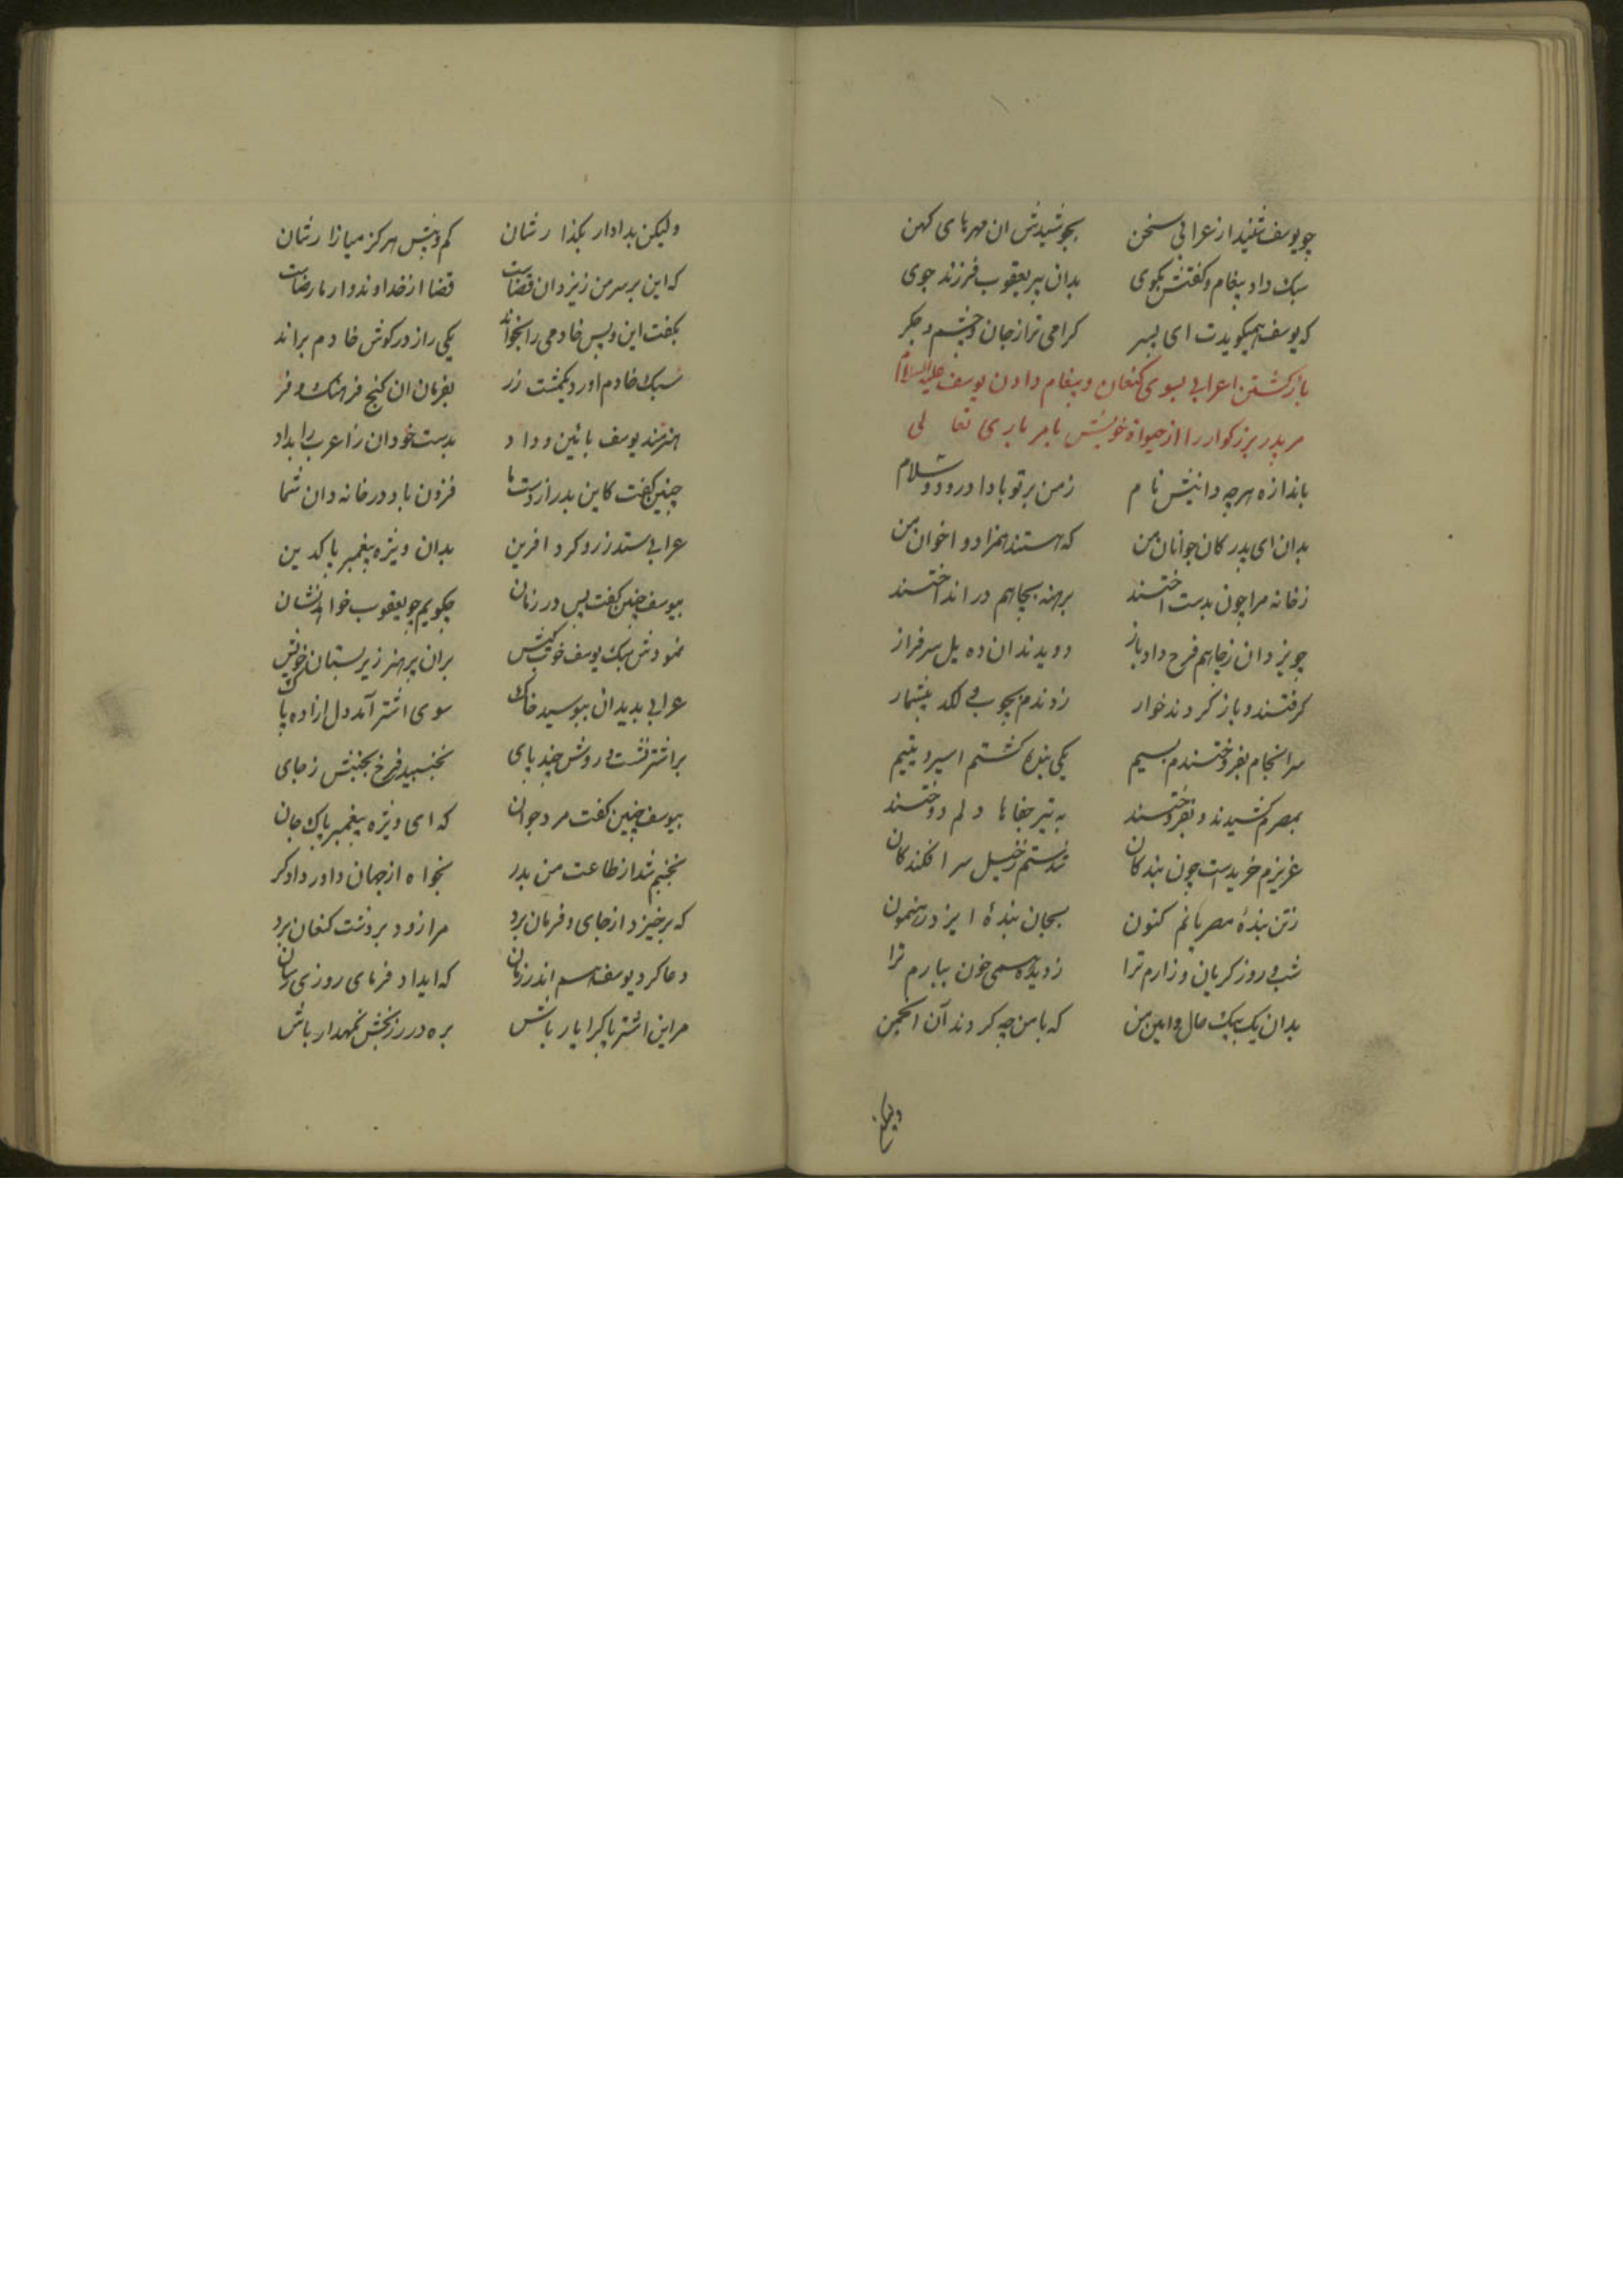 چو یوسف شنید از عرابی سخن بجوشیدش ان مهرهای کهن
سبک داد پیغام و کفتش بکوی بدان پیر یعقوب فرزند جوی
که یوسف همیکویدت ای پسر کرامی تر از جان و چشم و جکر
باز کشتن اعرابی بسوی کنعان و پیغام دادن یوسف علیه السلام
مر پدر بزرکوار را از حیوة خویش بامر باری تعالی
باندازه هرچه دانیش نام ز من بر تو بادا درود و سلام
بدان ای پدر کان جوانان من که هستند همزاد و اخوان من
ز خانه مرا چون بدست اختند برهنه بچاهم در انداختند
چو یزدان ز چاهم فرح داد باز دویدند ان ده یل سرفراز
کرفتند و باز کردند خوار زدندم بچوب و لکد بیشمار
سرانجام بفروختندم بسیم یکی بنده کشتم اسیر و یتیم
بمصرم کشیدند و بفروختند به تیر جفاها دلم دوختند
عزیزم خریدست چون بندکان ز خیل سرافکندکان
ز تن بندهٔ مصریانم کنون بجان بندهٔ ایزد رهنمون
شب و روز کریان و زارم ترا ز دیده همی خون ببارم ترا
بدان یک بیک حال و این من که با من چه کردند آن انجمن
ولیکن
ولیکن بدادار بکذارشان کم و بیش هرکز میازارشان
که این بر سر من ز یزدان قضاست قضا از خداوند و از ما رضاست
بکفت این و پس خادمی را بخواند یکی راز در کوش خادم براند
سبک خادم اورد یکمشت زر بفرمان ان کنج فرهنک و فر
هنرمند یوسف بائین و داد بدست خود ان زر اعرابی را بداد
چنین کفت کاین بدر از دست ما فزون باد در خانه دان شما
عرابی ستد زر و کرد افرین بدان ویژه پیغمبر پاکدین
بیوسف چنین کفت پس در زمان چکویم چو یعقوب خواهد نشان
نمودش سبک یوسف خوب کیش بران پرهنر زیر بستان خویش
عرابی بدید ان ببوسید خاک سوی اشتر آمد دل ازاده پاک
بر اشتر نشست و روش چند پای نجنبید فرخ بجنبش ز جای
بیوسف چنین کفت مرد جوان که ای ویژه پیغمبر پاک جان
نجنبم شد از طاعت من بدر بخواه از جهان داور دادکر
که برخیزد از جای و فرمان برد مرا زود بر دشت کنعان برد
دعا کرد یوسف هم اندر زمان که ایداد فرمای روزی رسان
مر این اشتر پاک را یار باش بره در ز رنجش نکهدار باش